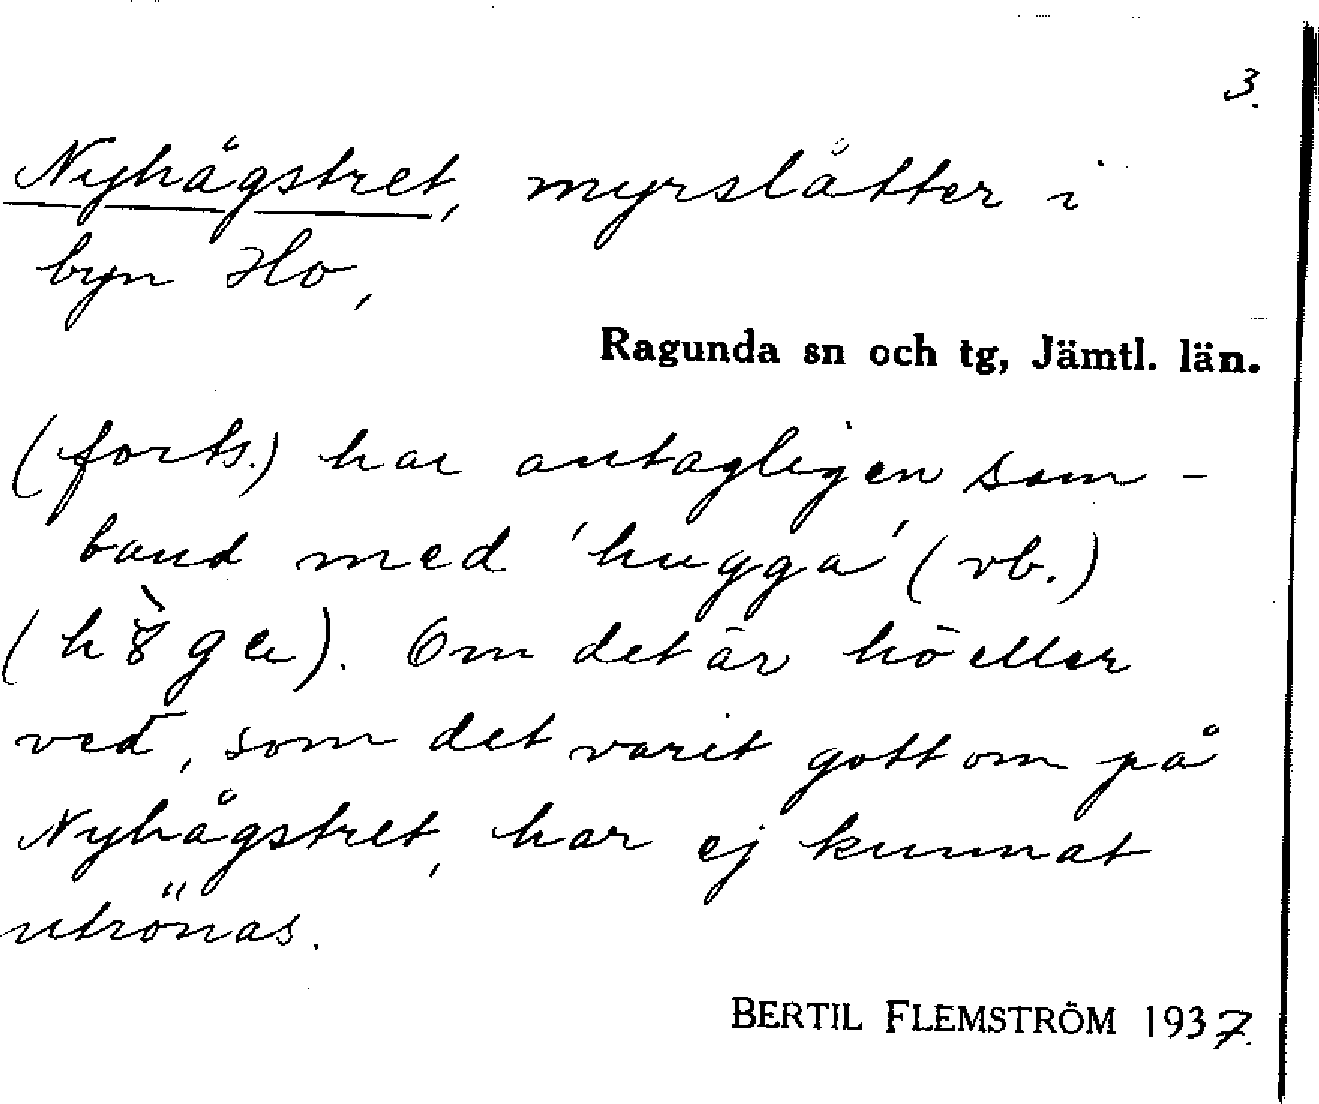 3.
Nyhågstret, myrslåtter i
byn Ho,
Ragunda sn och tg, Jämtl. län.
(forts.) har antagligen sam-
band med 'hugga' (vb.)
Om det är hö eller
ved, som det varit gott om på
Nyhågstret, har ej kunnat
utrönas.
BERTIL FLEMSTRÖM 1937.